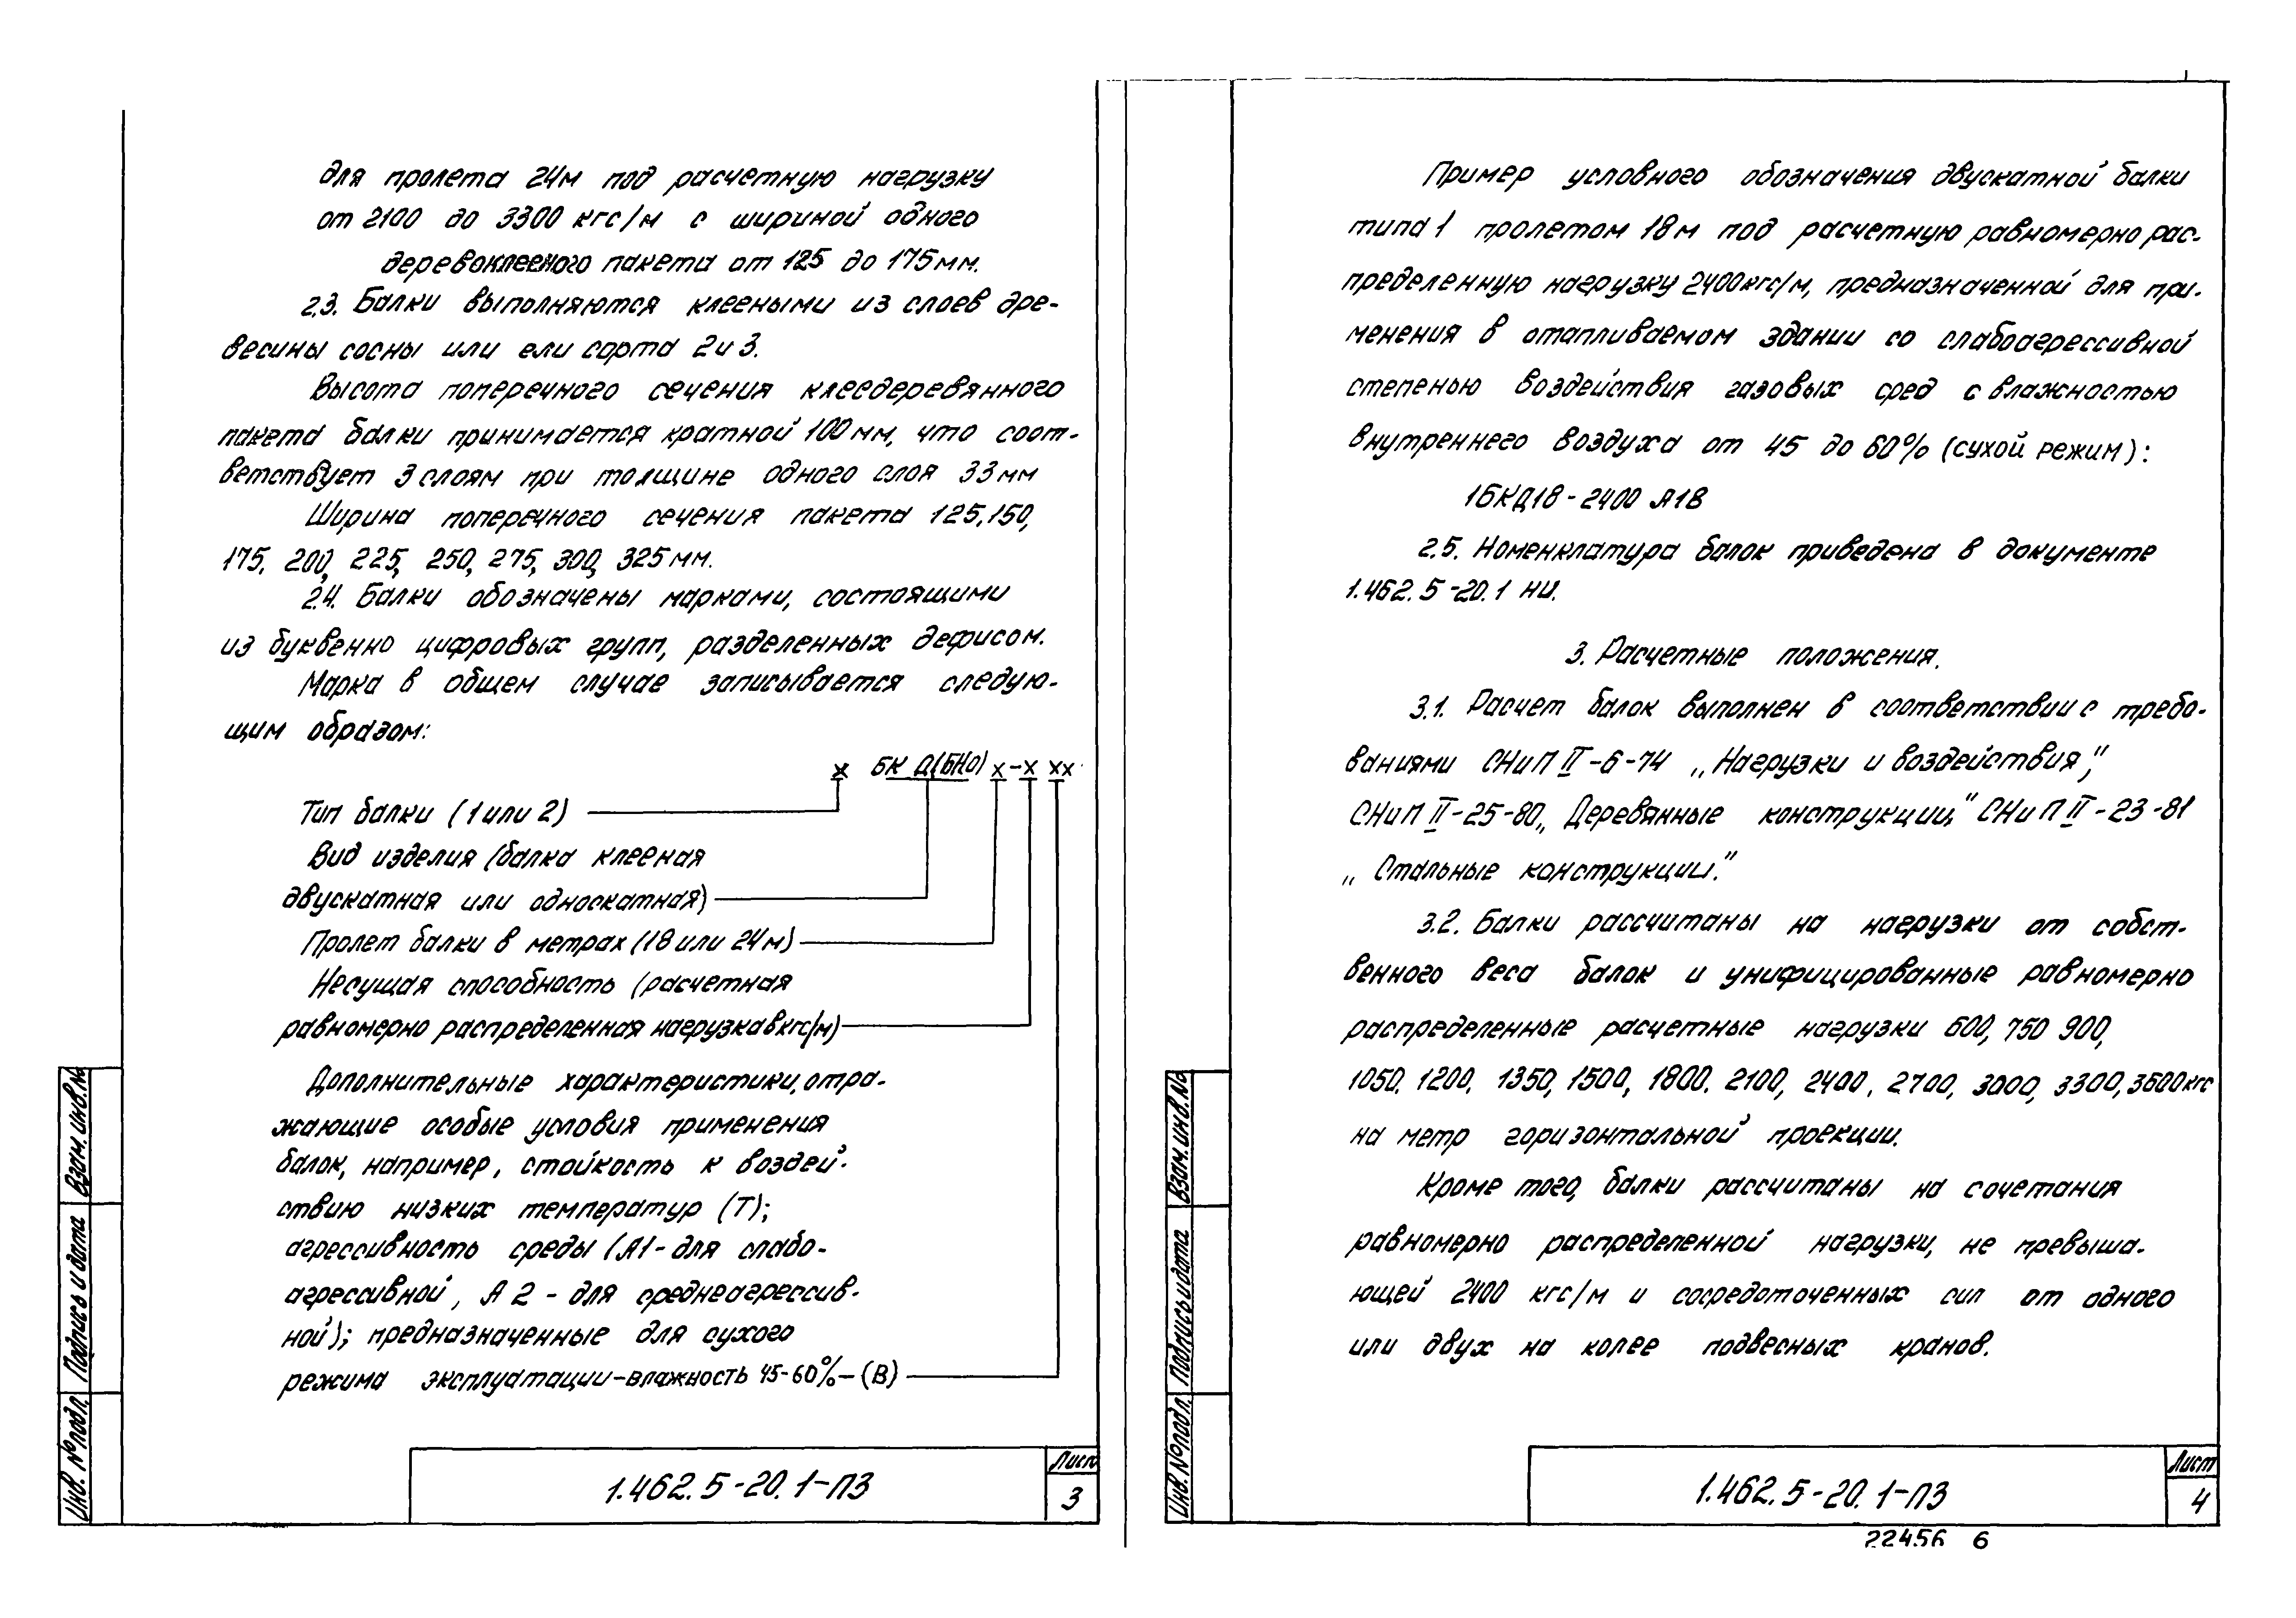 для пролета 24м под расчетную нагрузку
от 2100 до 3300 кгс/м с шириной одного
деревоклееного пакета от 125 до 175мм.
2.3. Балки выполняются клееными из слоев дре-
весины сосны или ели сорта 2и3.
Высота поперечного сечения клеедеревянного
пакета балки принимается кратной 100мм, что соот-
ветствует 3 слоям при толщине одного слоя 33мм
Ширина поперечного сечения пакета 125,150,
175, 200, 225, 250, 275, 300, 325мм.
2.4. Балки обозначены марками, состоящими
из буквенно цифровых групп, разделенных дефисом.
Марка в общем случае записывается следую-
щим образом:
х БК Д(БНО) х-х хх
Тип балки (1 или 2)
Вид изделия (балка клееная
двускатная или односкатная)
Пролет балки в метрах (18 или 24м)
Несущая способность (расчетная
равномерно распределенная нагрузка в кгс/м)
Дополнительные характеристики, отра-
жающие особые условия применения
балок, например, стойкость к воздей-
ствию низких температур (Т);
агрессивность среды (А1-для слабо-
агрессивной, А2 - для среднеагрессив-
ной); предназначенные для сухого
режима эксплуатации-влажность 45-60%-(В)
1.462.5-20.1-ПЗ
Лист
3
Инв. №подл. Подпись и дата Взам.инв.№
Пример условного обозначения двускатной балки
типа 1 пролетом 18м под расчетную равномерно рас-
пределенную нагрузку 2400кгс/м, предназначенной для при-
менения в отапливаемом здании со слабоагрессивной
степенью воздействия газовых сред с влажностью
внутреннего воздуха от 45 до 60% (сухой режим):
1БКД18-2400 А1В
2.5. Номенклатура балок приведена в документе
1.462.5-20.1 НИ.
3. Расчетные положения.
3.1. Расчет балок выполнен в соответствии с требо-
ваниями СНиП II-6-74 „Нагрузки и воздействия,"
СНиП II-25-80„ Деревянные конструкции," СНиП II-23-81
„ Стальные конструкции."
3.2. Балки рассчитаны на нагрузки от собст-
венного веса балок и унифицированные равномерно
распределенные расчетные нагрузки 600, 750 900,
1050. 1200, 1350, 1500, 1800. 2100, 2400, 2700, 3000, 3300, 3600кгс
на метр горизонтальной проекции.
Кроме того, балки рассчитаны на сочетания
равномерно распределенной нагрузки, не превыша-
ющей 2400 кгс/м и сосредоточенных сил от одного
или двух на колее подвесных кранов.
1.462.5-20.1-ПЗ
Лист
4
Инв. №подл. Подпись и дата Взам.инв.№
22456 6